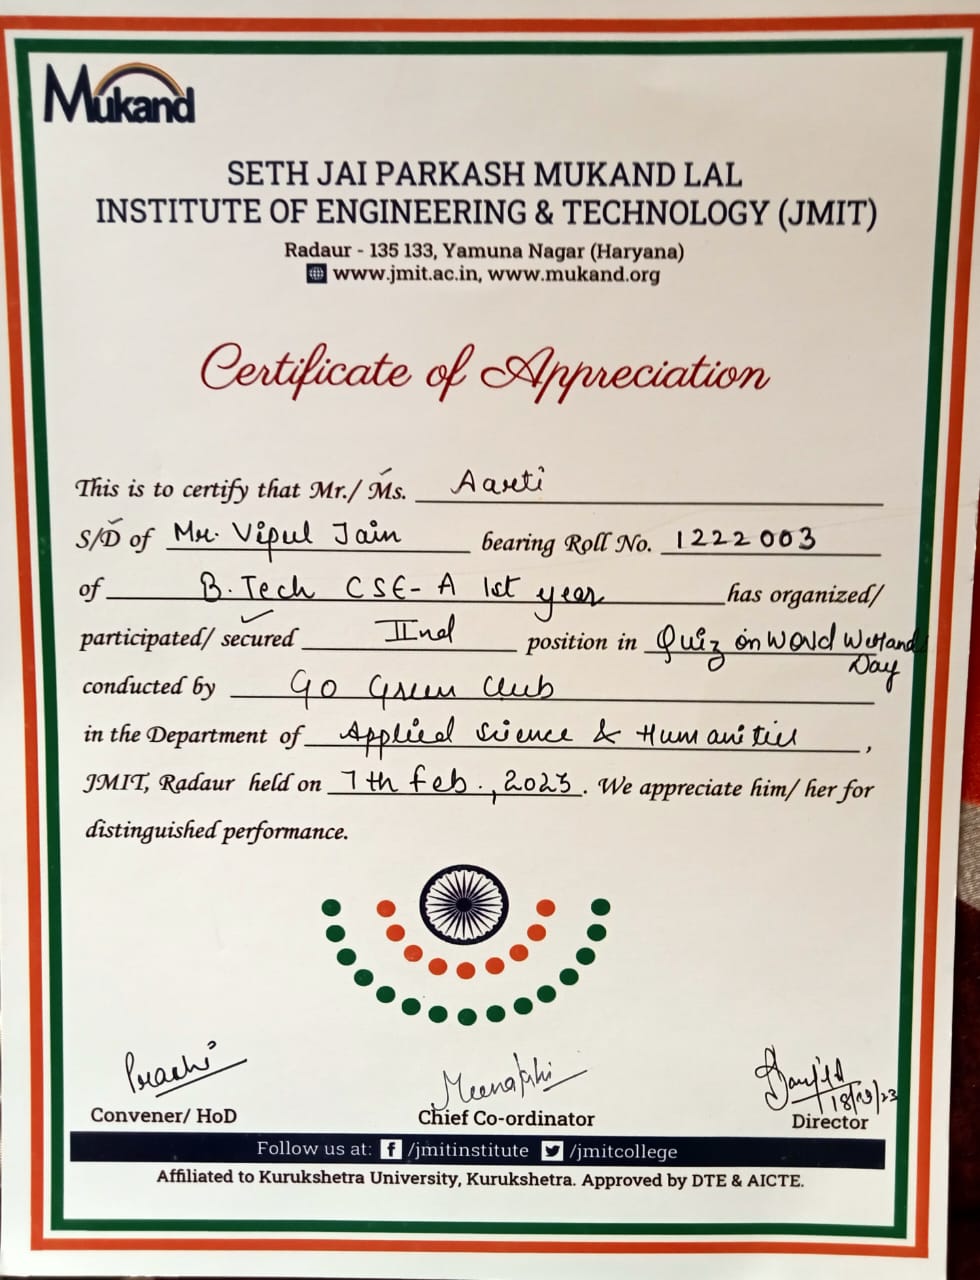 Mukand
SETH JAI PARKASH MUKAND LAL
INSTITUTE OF ENGINEERING & TECHNOLOGY (JMIT)
Radaur - 135 133, Yamuna Nagar (Haryana)
www.jmit.ac.in, www.mukand.org
Certificate of Appreciation
This is to certify that Mr./ Ms. Aarti
S/D of Mr. Vipul Jain bearing Roll No. 1222003
of B.Tech CSE-A 1st year has organized/
participated/ secured IInd position in Quiz on World Wetland
Day
conducted by Go Green Club
in the Department of Applied Science & Humanities,
JMIT, Radaur held on 7th Feb., 2023. We appreciate him/ her for
distinguished performance.
Prachi Meenakshi
Convener/ HoD Chief Co-ordinator Director
Follow us at: f /jmitinstitute /jmitcollege
Affiliated to Kurukshetra University, Kurukshetra. Approved by DTE & AICTE.